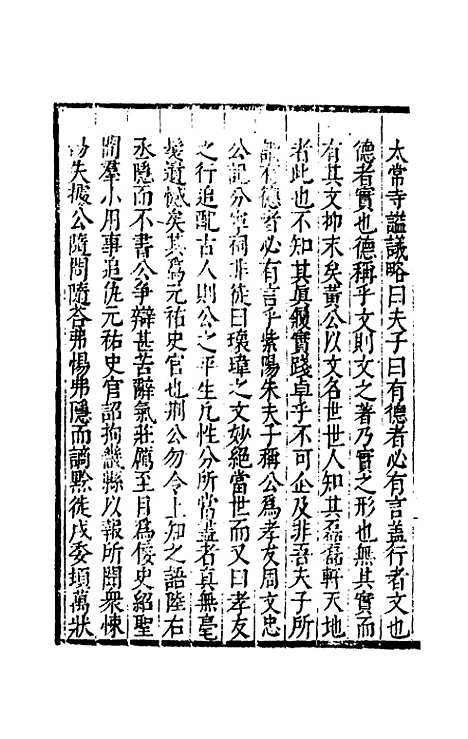 太常寺謚議略曰夫子曰有德者必有言盖行者文也
德者實也德稱乎文則文之著乃實之形也無其實而
有其文抑末矣黃公以文名世世人知其磊磊軒天地
者此也不知其真履實踐卓乎不可企及非吾夫子所
謂有德者必有言乎紫陽朱夫子稱公爲孝友周文忠
公記分寧祠非徒曰瓌瑋之文妙絕當世而又曰孝友
之行追配古人則公之平生凡性分所當盡者眞無毫
髮遺憾矣其爲元祐史官也荆公勿令上知之語陸右
丞隱而不書公爭辯甚苦辭氣莊厲至目爲佞史紹聖
間羣小用事追仇元祐史官詔拘畿縣以報所聞衆悚
失據公隨問隨荅弗惕弗隱而謫黔徙戍委頓萬狀